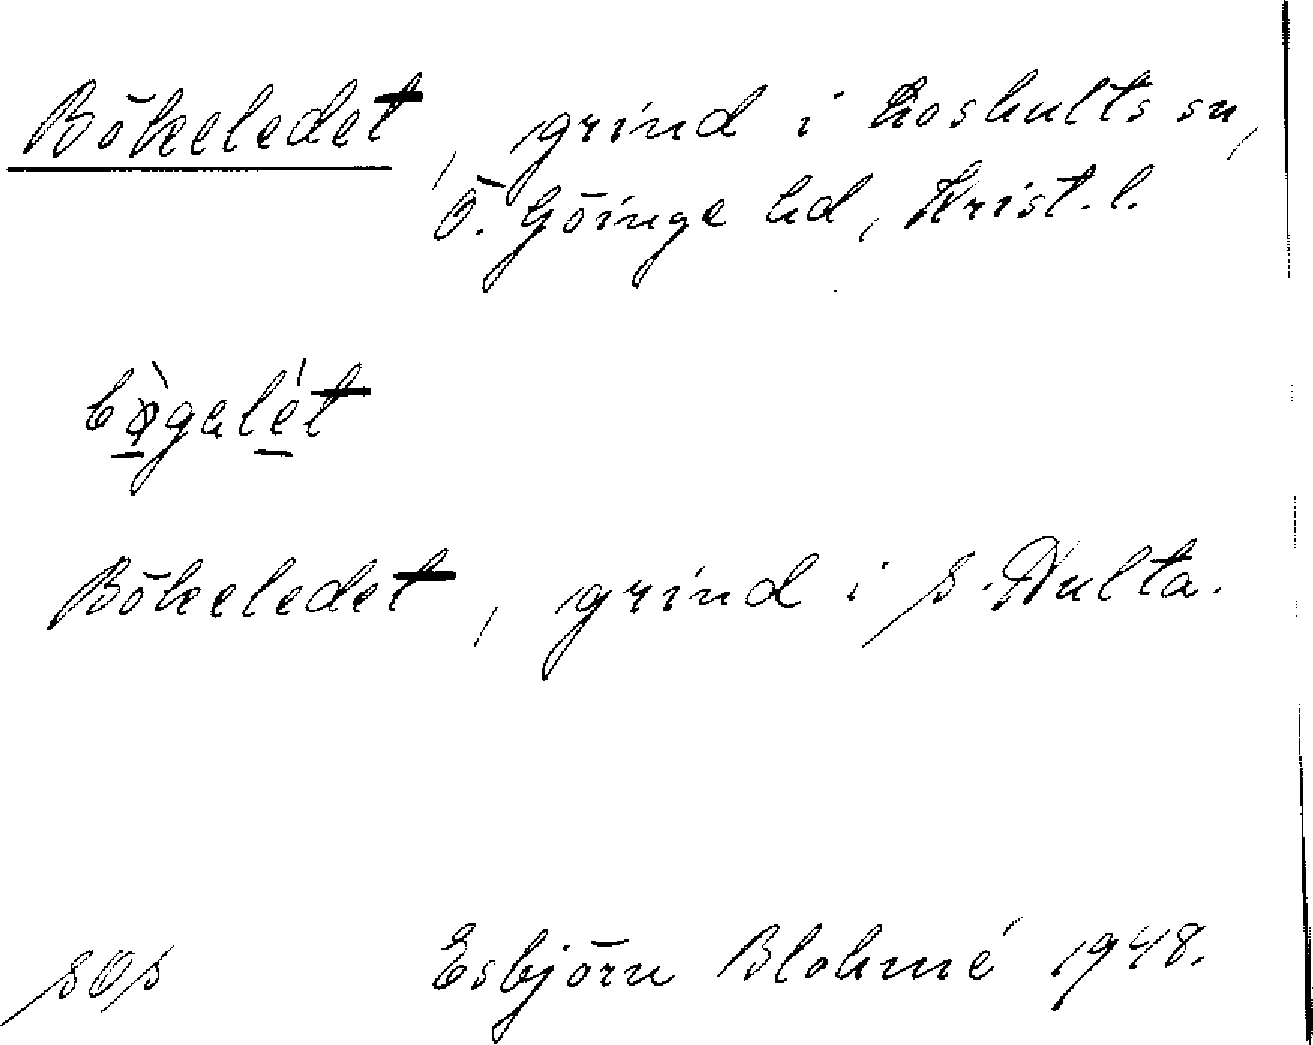 Bökeledet, grind i Loshults sn,
Ö. Göinge hd, Krist. l.
Bökeledet, grind i S. Hulta.
SOS Esbjörn Blohmé 1948.